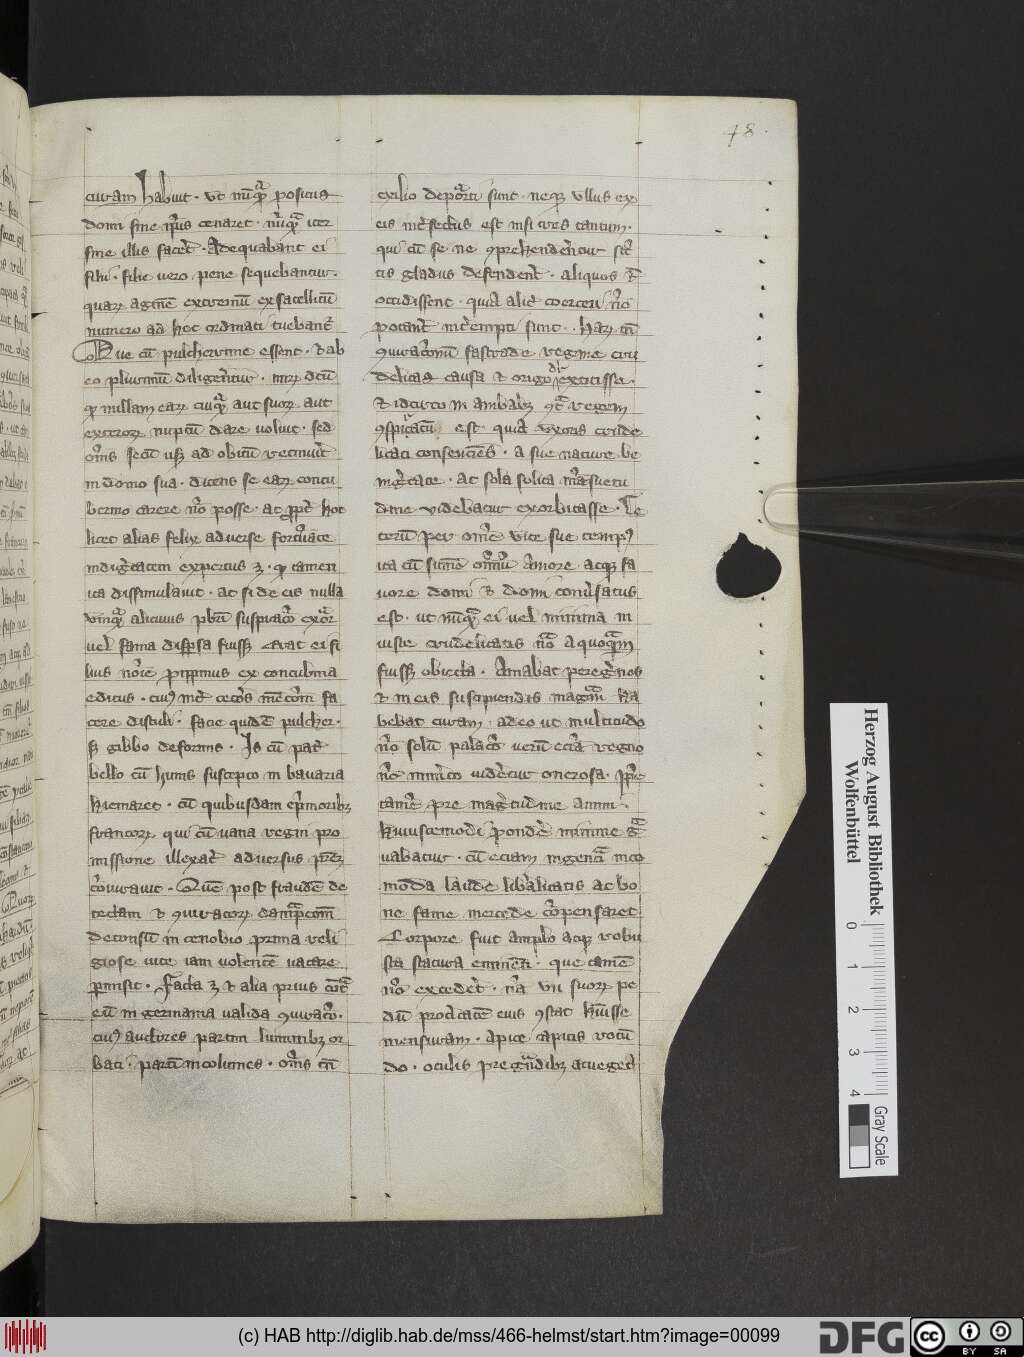 48
curam habuit · vt nūqᵃ̄ positus
domi sine ip̄is cenaret · nūqᵃ̄ iter
sine illis facet̄ · Adequabant ei
filii · filie uero pene sequebantur ·
quaꝝ agmē extremū ex satellitū
numero ad hoc ordinati tuebant̄
Que cū pulcherrime essent · ⁊ ab
eo plurimū diligent̄ur · miꝝ dc̄ū
ꝙ nullam eaꝝ cuiqᵃ̄ aut suoꝝ aut
exteroꝝ nuptū dare uoluit · sed
om̄s secū usqꝫ ad obitū retinuit̄
in domo sua · dicens se eaꝝ contu
bernio carere nō posse · ac ꝓpt̄ hoc
licet alias felix aduerse fortūate
indignitatem expertus ē · ꝙ tamen
ita dissimulauit · ac si de eis nulla
vnqᵃ̄ alicuius pbrī suspitiō exor̄
uel fama disp̄sa fuissꝫ · erat ei fi
lius noīe pippinus ex concubina
editus · cuiꝰ int̄ cet̄os mētōm fa
cere distuli · facie quidē pulcher ·
sꝫ gibbo deformis · Is cū pat̄
bello cū hunis suscepto in bauaria
hiemaret · cū quibusdam ep̄moribꝫ
francoꝝ qui cū uana regni pro
missione illexat̄ aduersus pr̄eꝫ
cōiurauit · Quē post fraudē de
tectam ⁊ ꝯiuratoꝝ dampnatōm̄
detonsū in cenobio prima reli
giose uite iam uolentē uacare
ꝑmisit · Facta ē ⁊ alia prius cōtᵃ
eū in germania ualida ꝯiuratō ·
cuiꝰ auctores partim luminibꝫ or
bati · partī incolumes · om̄s tn̄
exilio deportati sunt · neqꝫ vllus ex
eis int̄fectus est nisi tres tantum ·
qui cū se ne ꝯprehenderent̄ur stͥ
ctis gladiis defendent̄ · aliquos &
occidissent · quia aliͭ coerceri nō
potant̄ int̄empti sunt · Haꝝ tn̄
ꝯiuratōnū fastrade regine cru
delitas causa ⁊ origo extitisse ·
dr̄
⁊ idcirco in ambabꝫ ꝯtᵃ regem
ꝯspiratū est · quia vxoris crude
litati consentiēs · a sue nature be
nignitate · ac sola solita māsuetu
dine videbatur exorbitasse · Ce
terū per om̄e vite sue tempꝰ
ita cū sūmo omniū Amore atqꝫ fa
uore domi ⁊ domi conūsatus
est · ut nūqᵃ̄ ei uel minima in
iuste crudelitatis nō a quoqᵃ̄m
fuissꝫ obiecta · Amabat peregrinos
⁊ in eis suscipiendis magnā ha
bebat curam · adeo ut multitudo
nō solū palatō uerū ecīa regno
nō inmito uideretur onerosa · Ipse
tamē pre magnitudine animi ·
huiuscemodi pondē minime gᵃ
uabatur · cū etiam ingentia inco
moda laude liberalitatis ac bo
ne fame mercede cōpensaret
Corpore fuit amplo atqꝫ robu
sta statura eminenti · que tamē
nō excedet̄ · nā vii suoꝝ pe
dū procitatē eius ꝯstat hūisse
mensuram · apice capitis rotū
do · oculis pregrādibꝫ ac ueget̄
Herzog August Bibliothek
Wolfenbüttel
0
1
2
3
4
Gray Scale
(c) HAB http://diglib.hab.de/mss/466-helmst/start.htm?image=00099
DFG
cc
BY SA